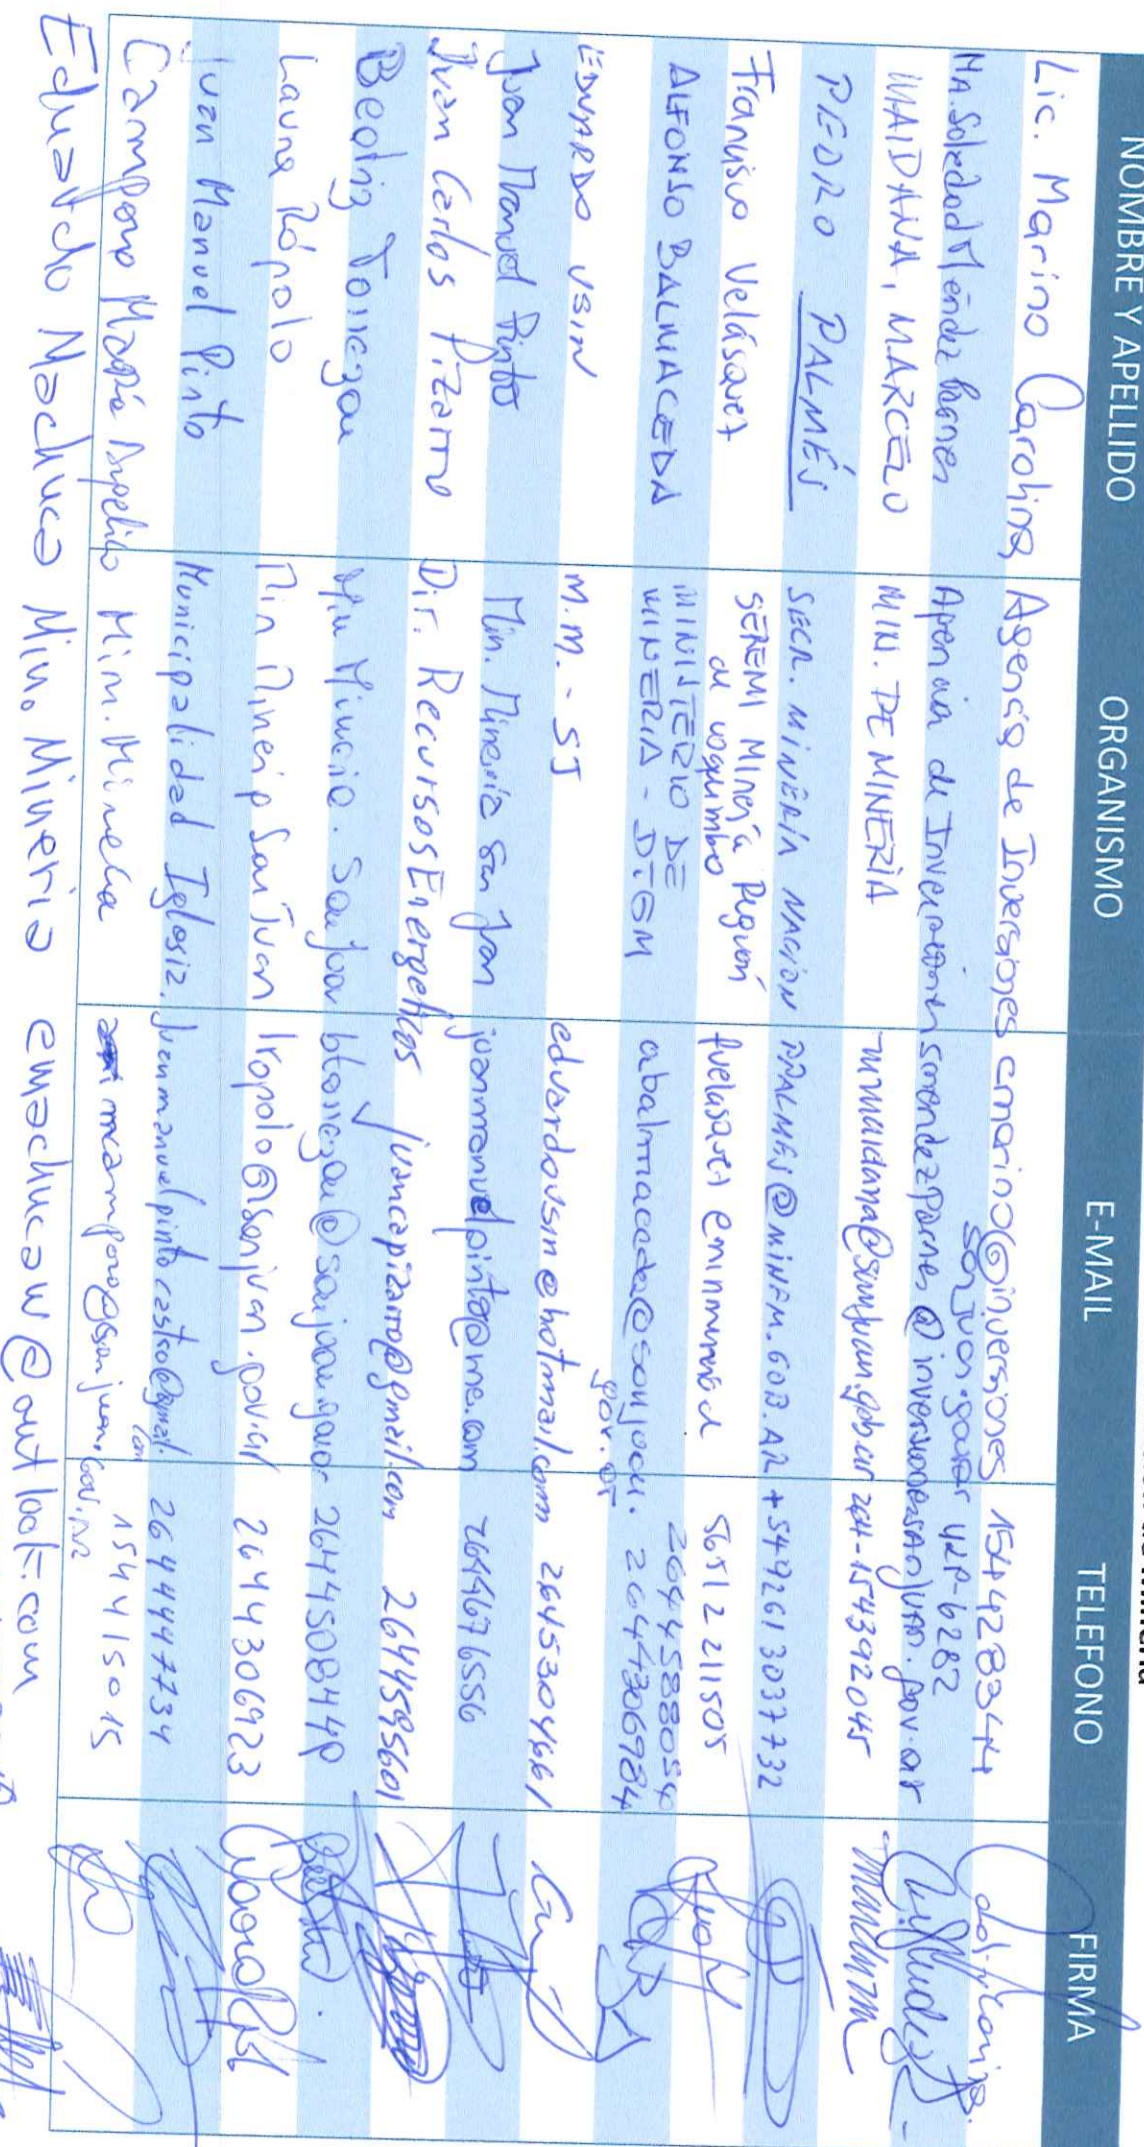 NOMBRE Y APELLIDO ORGANISMO E-MAIL TELEFONO FIRMA
Lic. Marino Carolina Agencia de Inversiones cmarino@inversiones 154428344
sanjuan.gov.ar
Ma. Soledad Méndez Agencia de Inversiones 428-6282
MAIDANA, MARCELO MIN. DE MINERIA mmaidana@sanjuan.gob.ar 264-154392045
PEDRO PALMÉS SECR. MINERÍA NACIÓN PPALMES@MINEM.GOB.AR +5492613037732
Francisco Velásquez SEREMI Minería Región de Coquimbo 56512211505
ALFONSO BALMACEDA MINISTERIO DE MINERIA - DTGM abalmaceda@sanjuan.gov.ar 2644588054
2644306984
EDUARDO USIN M.M. - SJ eduardousin@hotmail.com 2645304661
Juan Manuel Pinto Min. Minería San Juan juanmanuelpinto@me.com 2644676556
Juan Carlos Pizarro Dir. Recursos Energeticos juancapizarro@gmail.com 2644595601
Beatriz Min Mineria. San Juan
Laura Rópolo Min Mineria San Juan lropolo@sanjuan.gov.ar 2644306923
Juan Manuel Pinto Municipalidad Iglesia. juanmanuelpintocastro@gmail.com 2644447734
Campora María Min. Mineria mcampora@sanjuan.gov.ar 154415015
Eduardo Machuca Min. Mineria emachucaw@outlook.com